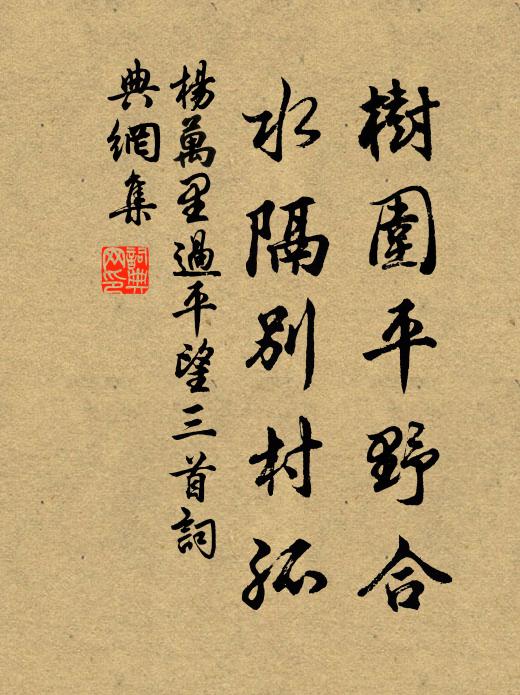 樹圍平野合
水隔別村孤
楊萬里過平望三首詞
典網集
詞典
网印